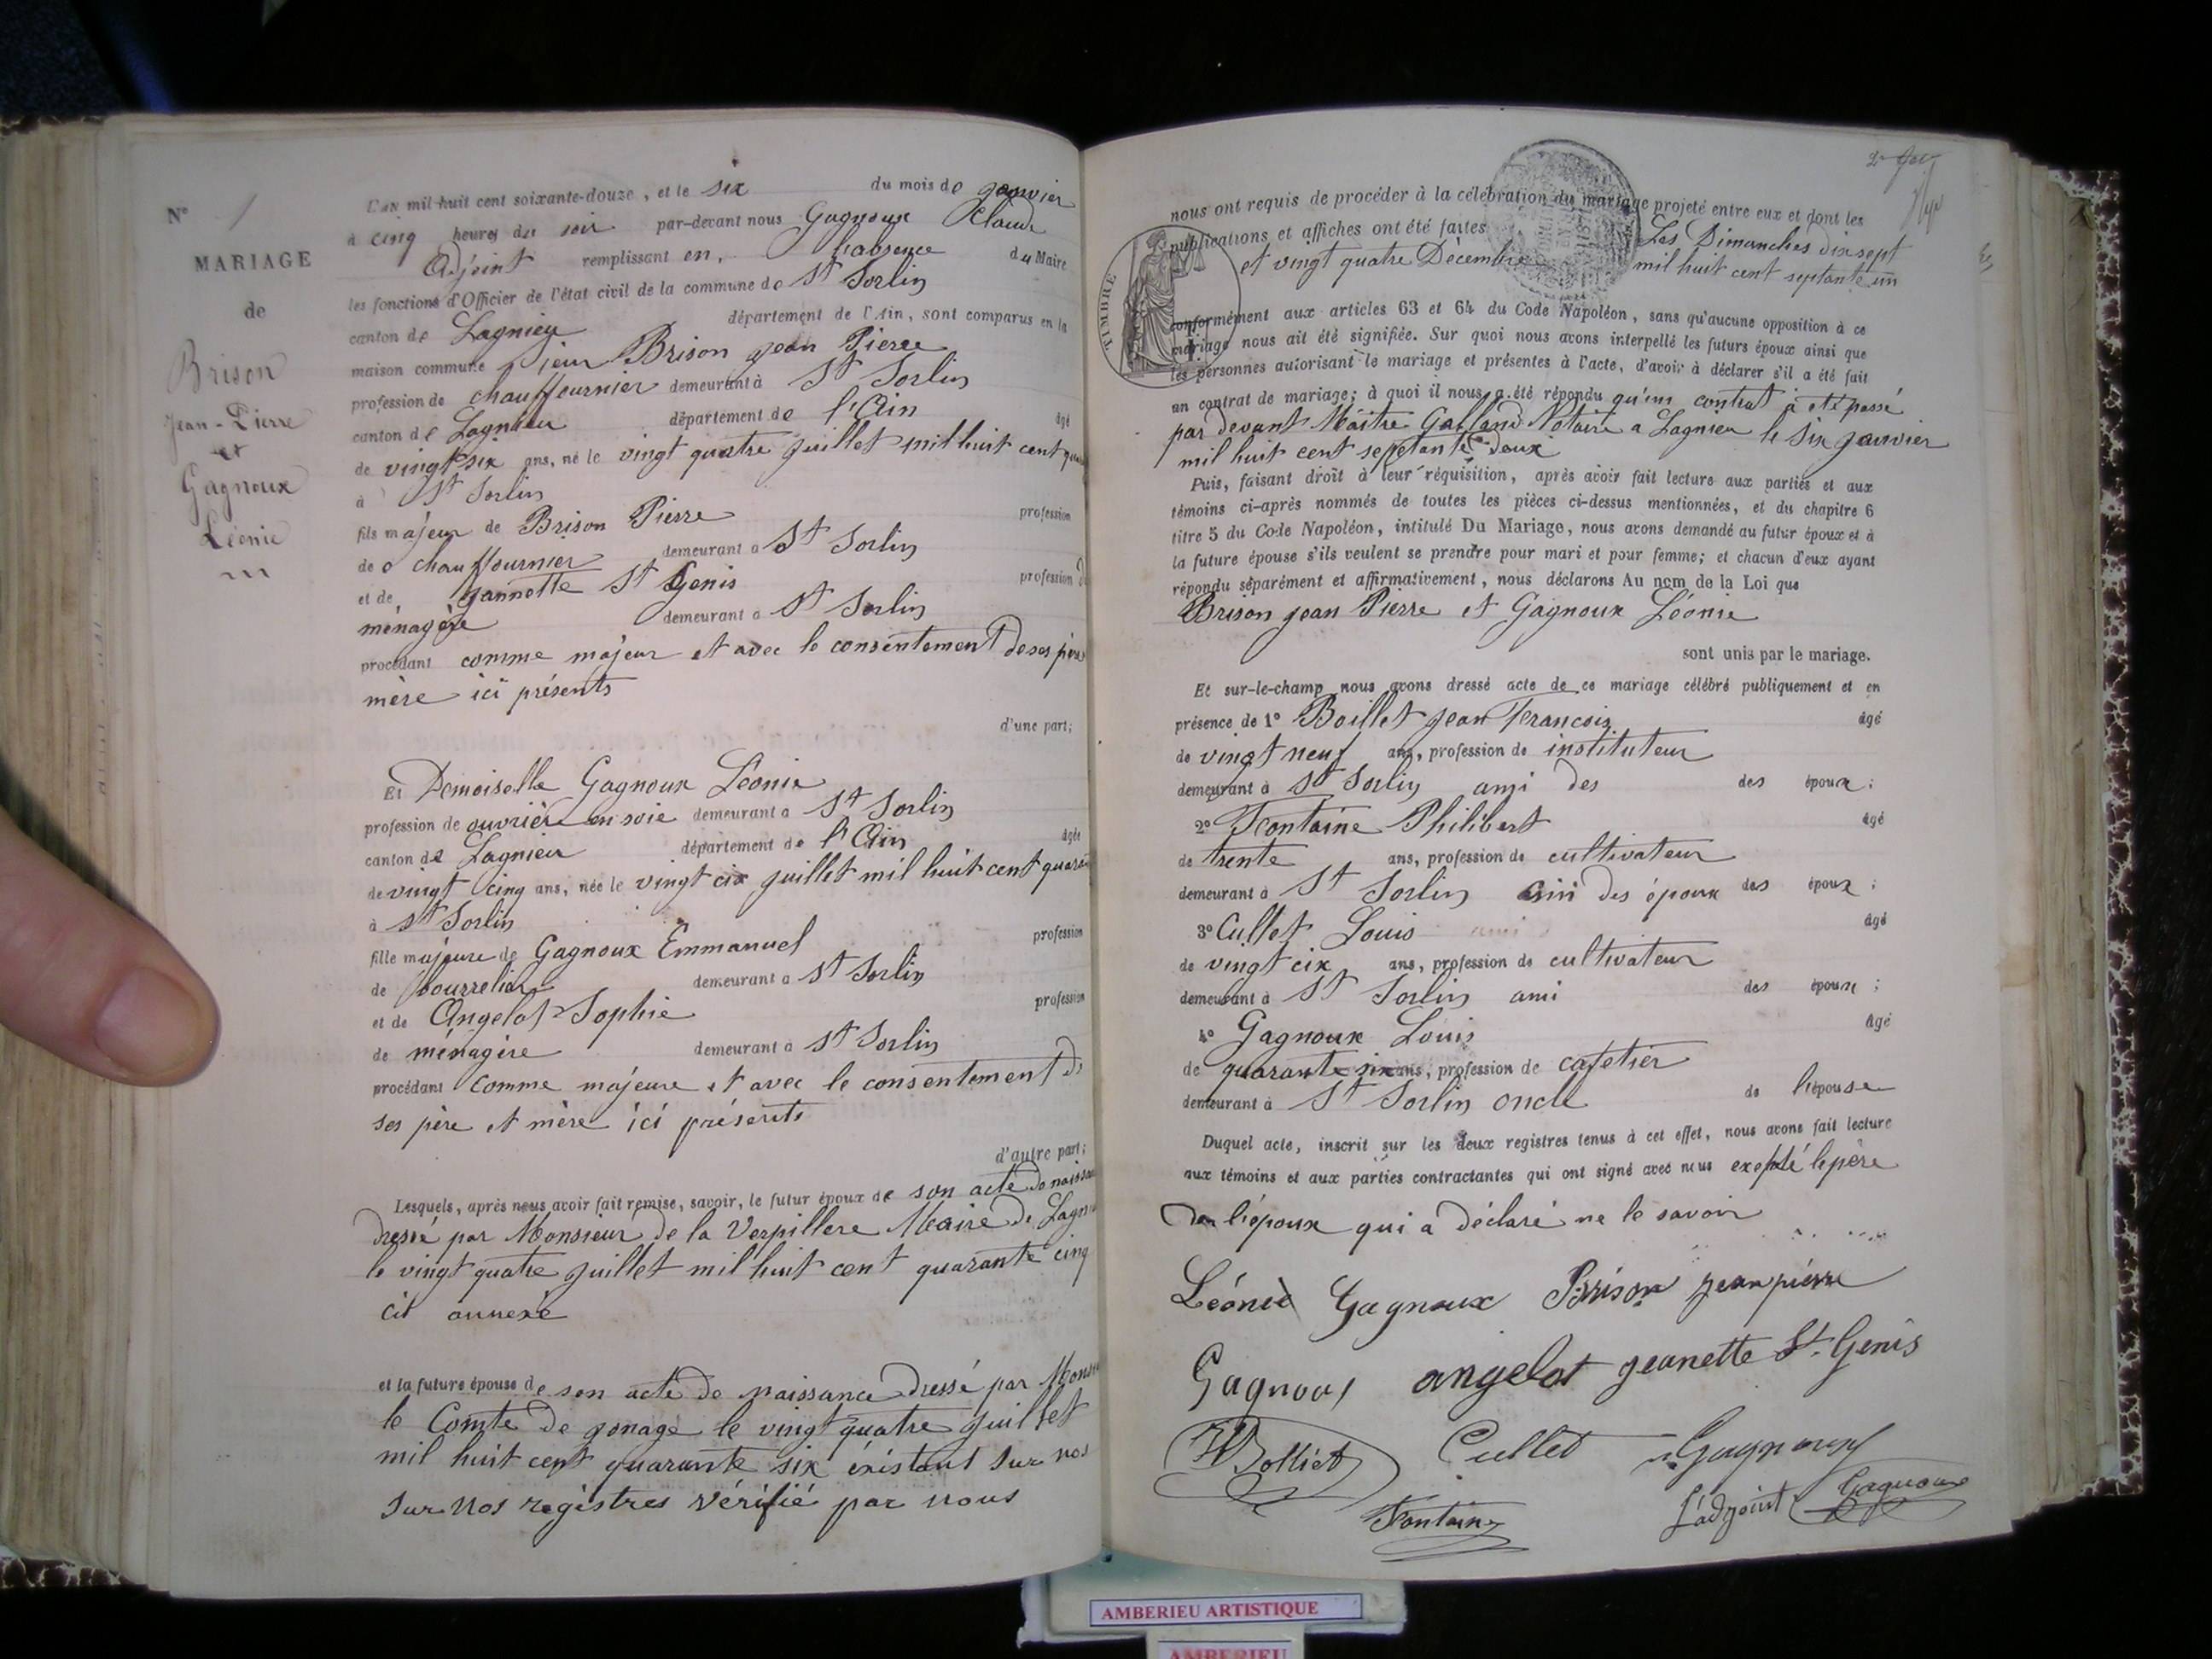 N° 1
MARIAGE
de
Brison
Jean-Pierre
et
Gagnoux
Léonie
L'AN mil huit cent soixante-douze, et le six du mois de janvier
à cinq heures du soir par-devant nous Gagnoux Claude
Adjoint remplissant en, l'absence du Maire
les fonctions d'Officier de l'état civil de la commune de St Sorlin
canton de Lagnieu département de l'Ain, sont comparus en la
maison commune Sieur Brison jean Pierre
profession de chauffournier demeurant à St Sorlin
canton de Lagnieu département de l'Ain âgé
de vingt six ans, né le vingt quatre juillet mil huit cent
à St Sorlin
fils majeur de Brison Pierre profession
de chauffournier demeurant a St Sorlin
et de Jannette St Genis profession
ménagère demeurant a St Sorlin
procédant comme majeur et avec le consentement de ses père
mère ici présents
d'une part;
Et Demoiselle Gagnoux Léonie
profession de ouvrière en soie demeurant a St Sorlin
canton de Lagnieu département de l'Ain âgée
de vingt cinq ans, née le vingt cix juillet mil huit cent
à St Sorlin
fille majeure de Gagnoux Emmanuel profession
de bourrelier demeurant a St Sorlin
et de Angelot Sophie profession
de ménagère demeurant a St Sorlin
procédant comme majeure et avec le consentement de
ses père et mère ici présents
d'autre part;
Lesquels, après nous avoir fait remise, savoir, le futur époux de son acte de
dressé par Monsieur de la Verpillere Maire de
le vingt quatre juillet mil huit cent quarante cinq
cit annexé
et la future épouse de son acte de naissance dressé par
le Comte de gonage le vingt quatre juillet
mil huit cent quarante six éxistant sur nos
sur nos registres vérifié par nous
nous ont requis de procéder à la célébration du mariage projeté entre eux et dont les
publications et affiches ont été faites Les Dimanches dix sept
et vingt quatre Décembre mil huit cent septante un
TIMBRE
conformément aux articles 63 et 64 du Code Napoléon, sans qu'aucune opposition à ce
mariage nous ait été signifiée. Sur quoi nous avons interpellé les futurs époux ainsi que
les personnes autorisant le mariage et présentes à l'acte, d'avoir à déclarer s'il a été fait
un contrat de mariage; à quoi il nous a été répondu qu'un contrat à été passé
par devant Maître Galland Notaire a Lagnieu le six janvier
mil huit cent septante deux
Puis, faisant droit à leur réquisition, après avoir fait lecture aux parties et aux
témoins ci-après nommés de toutes les pièces ci-dessus mentionnées, et du chapitre 6
titre 5 du Code Napoléon, intitulé Du Mariage, nous avons demandé au futur époux et à
la future épouse s'ils veulent se prendre pour mari et pour femme; et chacun d'eux ayant
répondu séparément et affirmativement, nous déclarons Au nom de la Loi que
Brison jean Pierre et Gagnoux Léonie
sont unis par le mariage.
Et sur-le-champ nous avons dressé acte de ce mariage célébré publiquement et en
présence de 1° Boillet jean Francois âgé
de vingt neuf ans, profession de instituteur
demeurant à St Sorlin ami des des époux;
2° Fontaine Philibert âgé
de trente ans, profession de cultivateur
demeurant à St Sorlin ami des époux des époux;
3° Cullet Louis âgé
de vingt cix ans, profession de cultivateur
demeurant à St Sorlin ami des époux;
4° Gagnoux Louis âgé
de quarante six ans, profession de cafetier
demeurant à St Sorlin oncle de l'épouse
Duquel acte, inscrit sur les deux registres tenus à cet effet, nous avons fait lecture
aux témoins et aux parties contractantes qui ont signé avec nous exepté le père
de l'époux qui a déclaré ne le savoir
Léonie Gagnoux Brison jean pierre
Gagnoux angelot jeanette St. Genis
Bolliet Cullet Gagnoux
Fontaine L'adjoint Gagnoux
AMBERIEU ARTISTIQUE
AMBERIEU